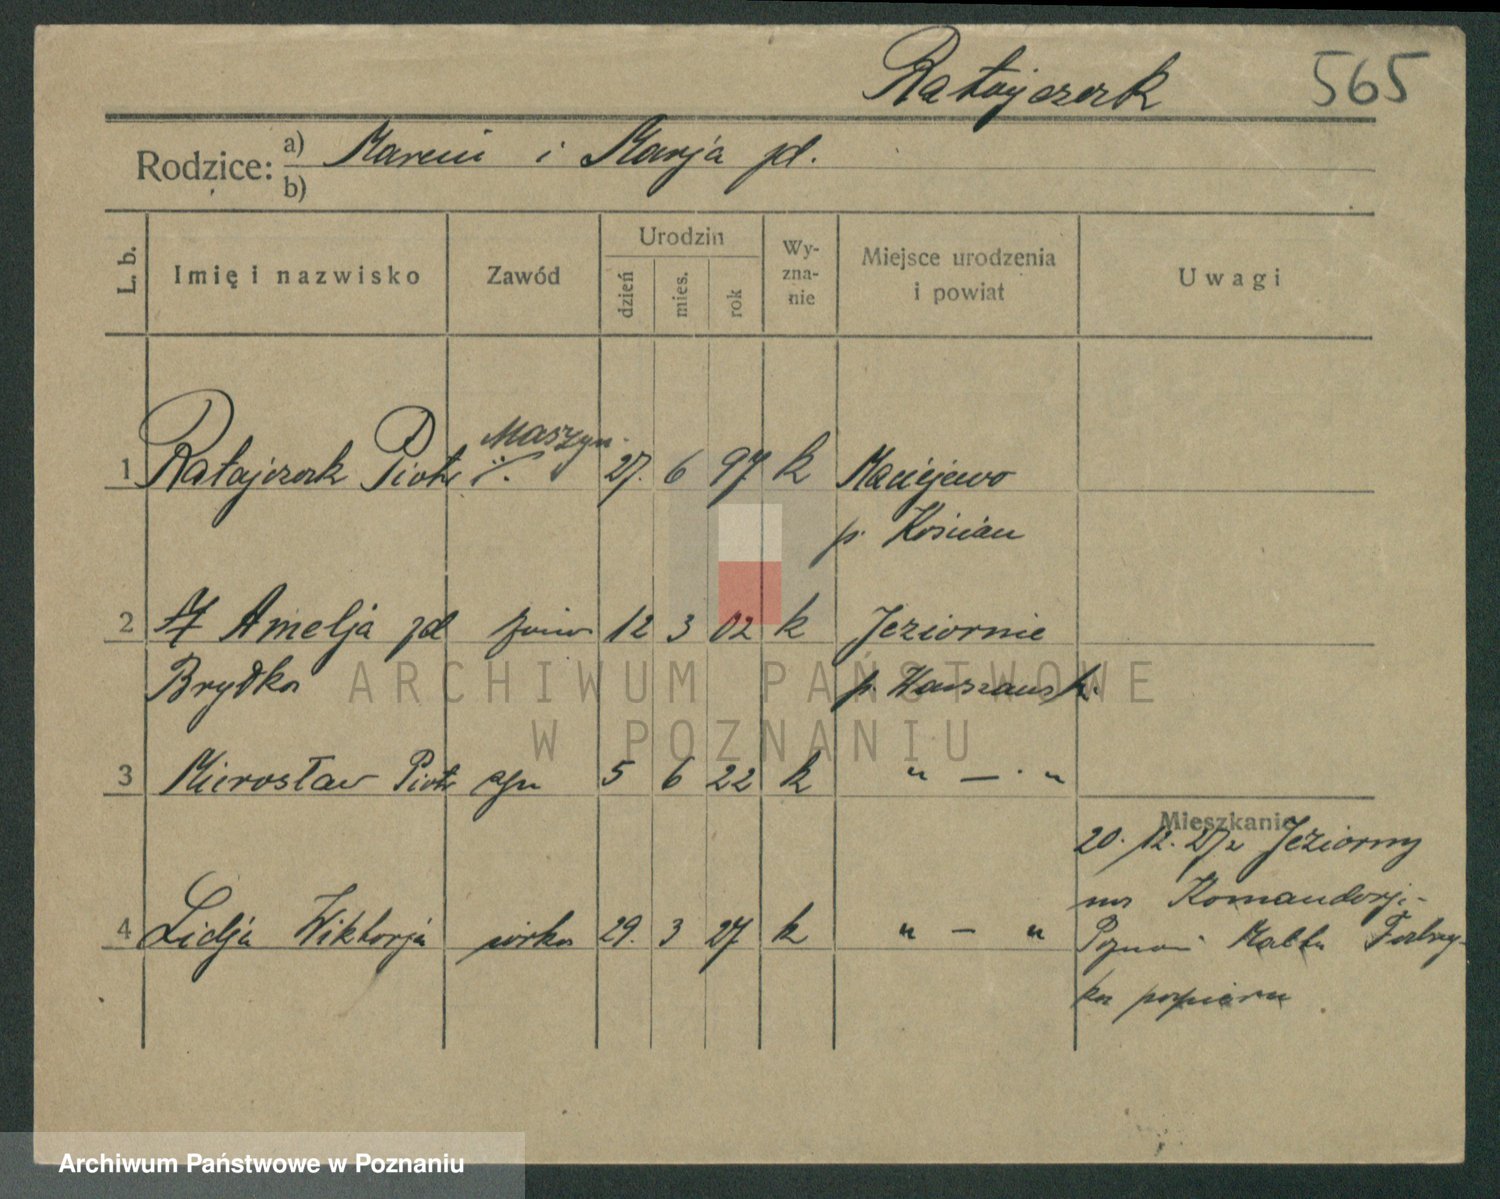 Ratajczak 565
Rodzice: a) Marcin i Marja zd.
b)
L. b. Imię i nazwisko Zawód Urodzin dzień mies. rok Wyznanie Miejsce urodzenia i powiat Uwagi
Maszyn.
1 Ratajczak Piotr 27. 6 97 k Maciejewo
p. Kościan
2 Amelja zd żona 12 3 02 k Jeziornie
Brydka p. Warszawsk.
ARCHIWUM PAŃSTWOWE
W POZNANIU
3 Mirosław Piotr syn 5 6 22 k " — "
Mieszkanie
20. 12. 27 z Jeziorny
na Komandorj.-
4 Lidja Wiktorja córka 29. 3 27 k " — " Poznań Malta Fabry-
ka papieru
Archiwum Państwowe w Poznaniu